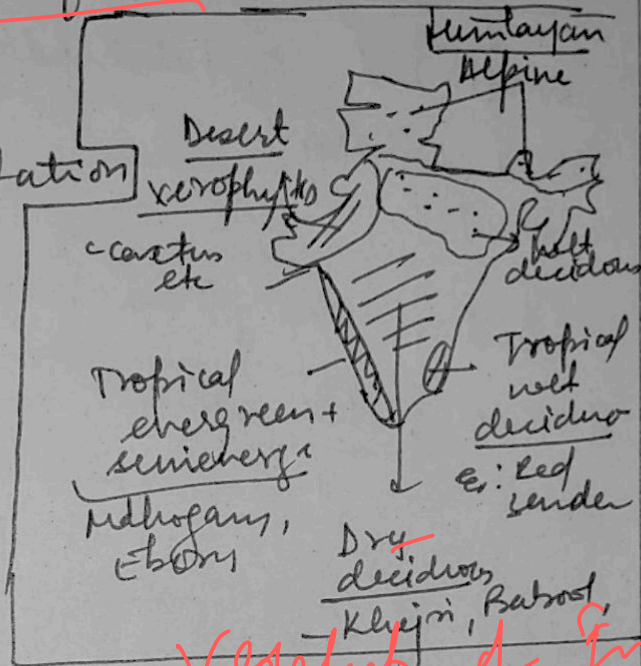 Himlayan
Alpine
Desert
xerophytes
-cactus
etc
ation
Wet
decidous
Tropical
evergreen +
semievergr
Mahogany,
Ebony
Tropical
wet
deciduo
Ex: Red
sander
Dry
decidious
- Khejri, Babool,